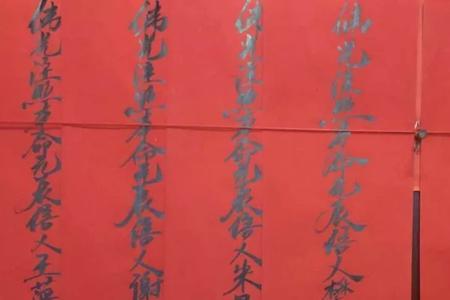 佛光注照本命元辰信人林
佛光注照本命元辰信人朱
佛光注照本命元辰信人謝
佛光注照本命元辰信人王